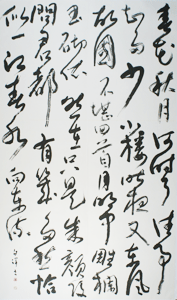 春花秋月何時了往事
知多少小樓昨夜又東風
故國不堪回首月明中雕欄
玉砌依然在只是朱顏改
問君都有幾多愁恰
似一江春水向東流